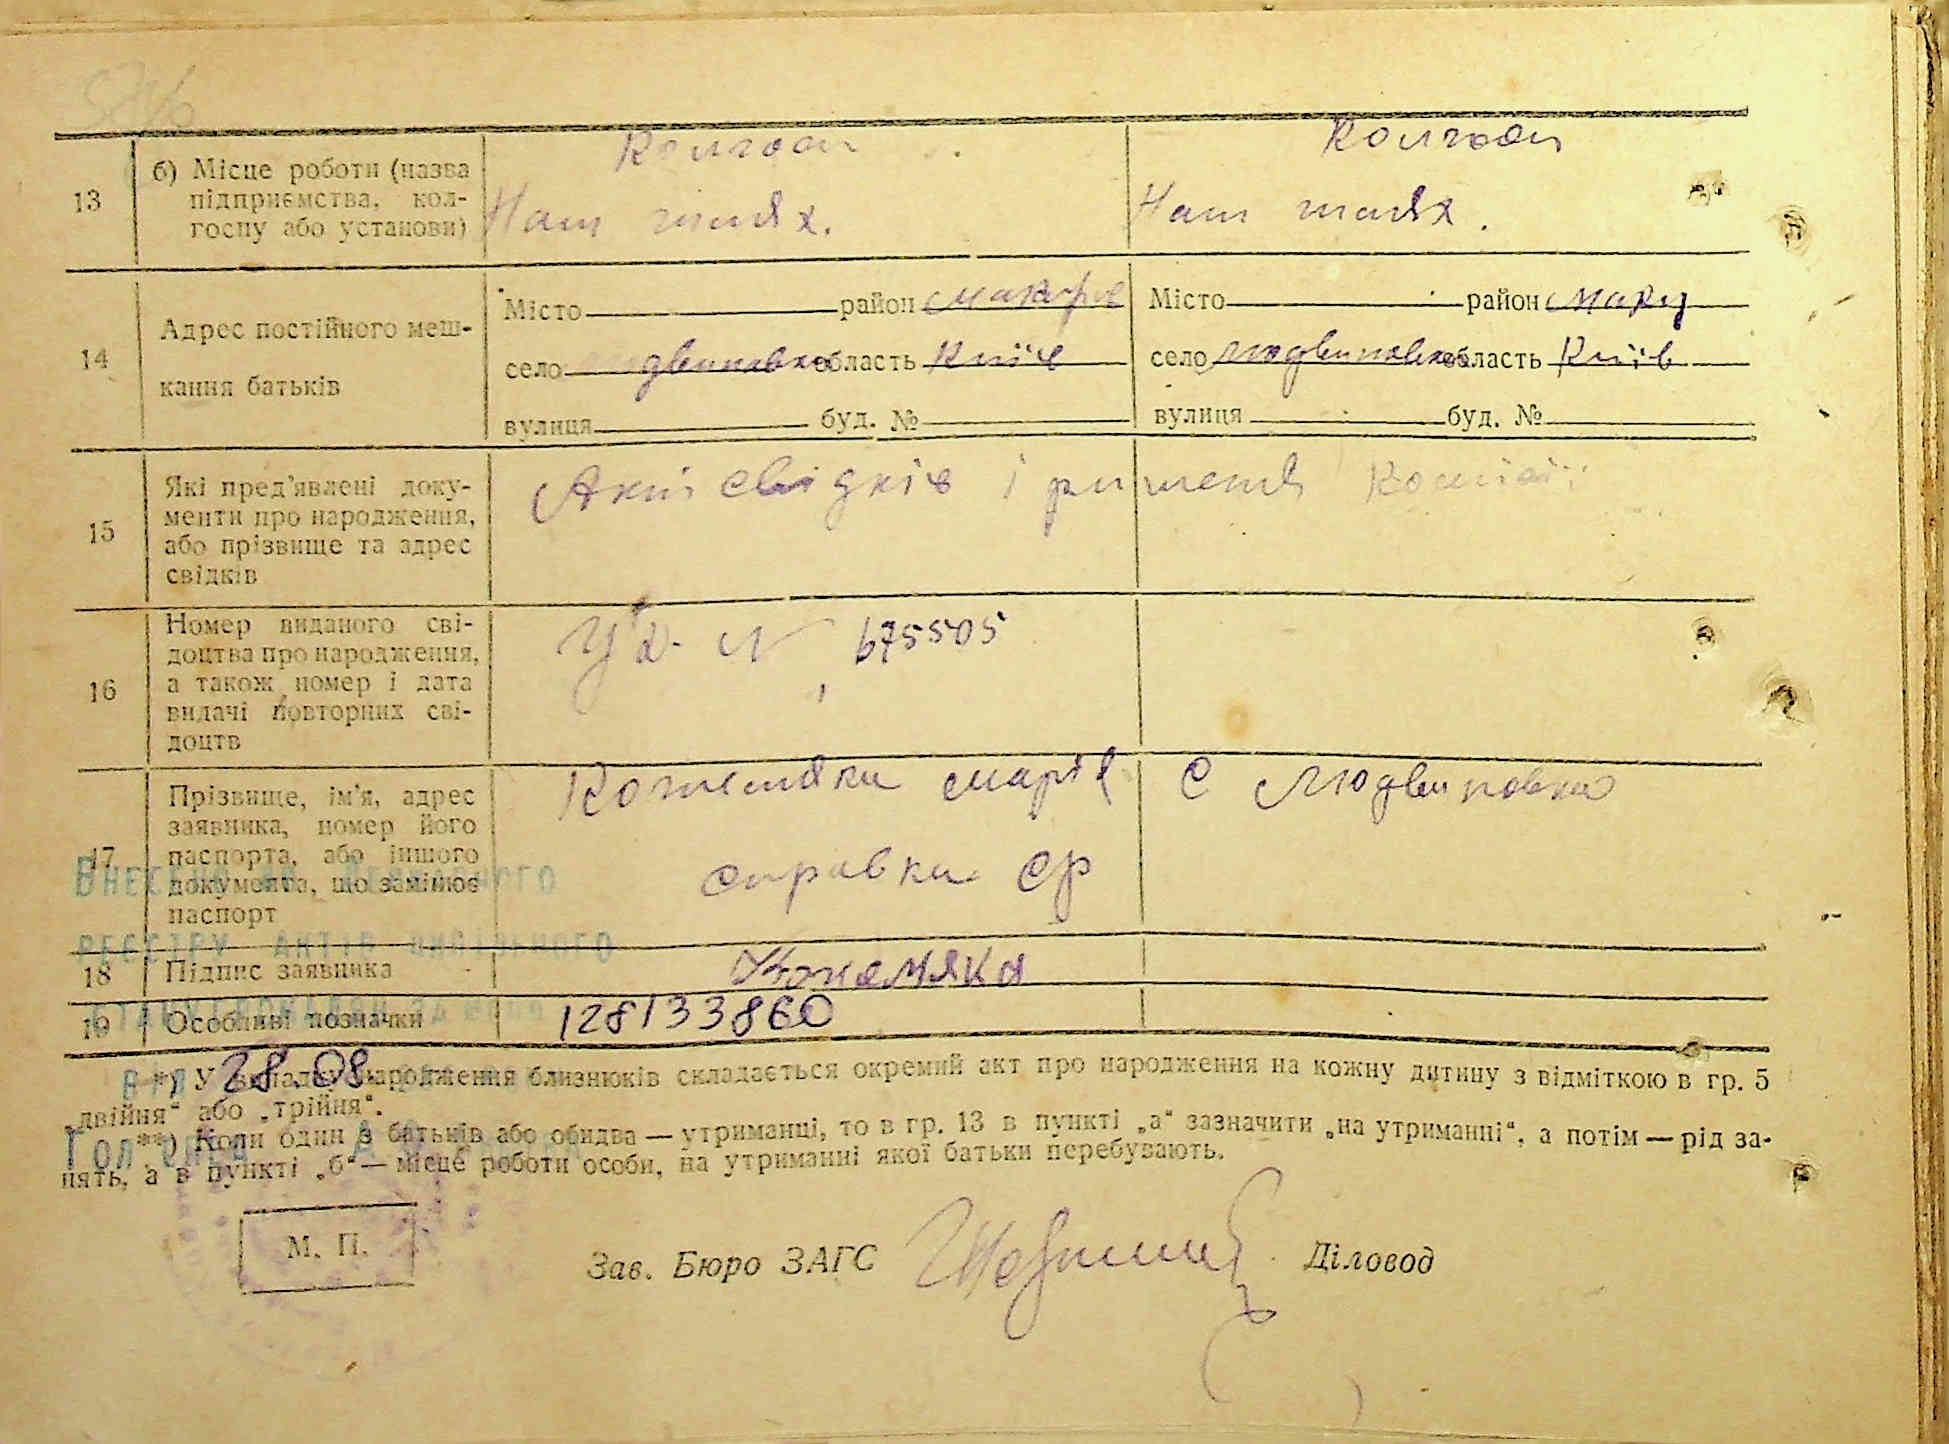 13
б) Місце роботи (назва
підприємства, кол-
госпу або установи)
Колгосп
Наш шлях.
Колгосп
Наш шлях.
14
Адрес постійного меш-
кання батьків
Місто район Макарів
село Людвиновка область Київ
вулиця буд. №
Місто район Макар
село Людвиновка область Київ
вулиця буд. №
15
Які пред'явлені доку-
менти про народження,
або прізвище та адрес
свідків
Акт свідків і решення комісії
16
Номер виданого сві-
доцтва про народження,
а також номер і дата
видачі повторних сві-
доцтв
№ 675505
17
Прізвище, ім'я, адрес
заявника, номер його
паспорта, або іншого
документа, що замінює
паспорт
Кожемяка Марія с Людвиновка
справка ср
ВНЕСЕНО ДО ДЕРЖАВНОГО
РЕЄСТРУ АКТІВ ЦИВІЛЬНОГО
18
Підпис заявника
Кожемяка
19
Особливі позначки
128133860
28.08.
*) У випадку народження близнюків складається окремий акт про народження на кожну дитину з відміткою в гр. 5
„двійня“ або „трійня“.
**) Коли один з батьків або обидва — утриманці, то в гр. 13 в пункті „а“ зазначити „на утриманні“, а потім — рід за-
нять, а в пункті „б“ — місце роботи особи, на утриманні якої батьки перебувають.
М. П.
Зав. Бюро ЗАГС
Діловод